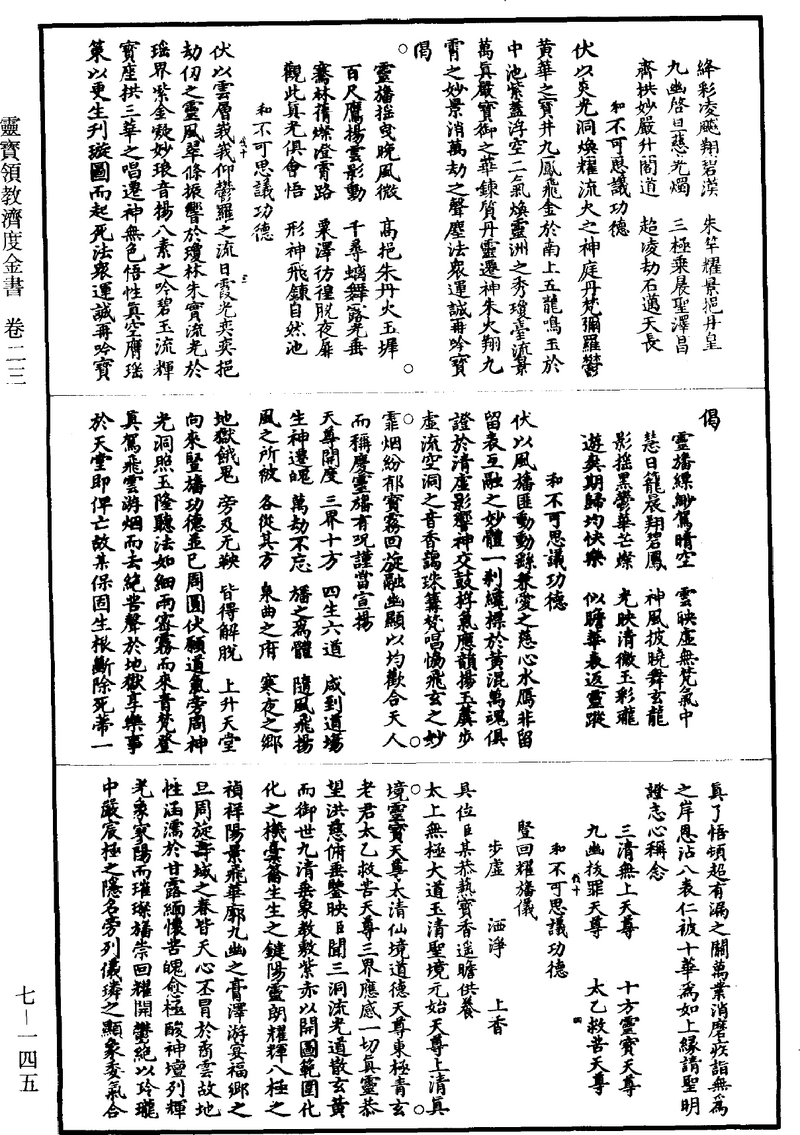 靈寶領教濟度金書 卷二三
絳彩凌飈翔碧漢 朱竿耀景挹丹皇
九幽啓旦慈光燭 三極乘晨聖澤昌
齊拱妙嚴升閬道 超凌劫石邁天長
和不可思議功德
伏以炎光洞煥耀流火之神庭丹梵彌羅鬱
黃華之寶井九鳳飛金於南上五龍鳴玉於
中池紫蓋浮空二氣煥靈洲之秀瓊臺流景
萬真嚴寶御之華鍊質丹靈遷神朱火翔九
霄之妙景消萬劫之聲塵法衆運誠再吟寶
偈
靈旛搖曳晚風微 高挹朱丹火玉墀
百尺鷹揚雲影動 千尋螭舞露光垂
騫林蒨燦澄霄路 粟澤彷徨脫夜扉
觀此真光俱會悟 形神飛鍊自然池
和不可思議功德
伏以雲層峩峩仰鬱羅之流日霞光奕奕挹
劫仞之靈風翠條振響於瓊林朱實流光於
瑤界紫金凝妙琅音揚八素之吟碧玉流輝
寶座拱三華之唱遷神無色悟性真空膺瑤
策以更生刋璇圖而起死法衆運誠再吟寶
偈
靈旛縹緲駕晴空 雲映虛無梵氣中
慧日籠晨翔碧鳳 神風披曉舞玄龍
影搖黑鬱華芒燦 光映清微玉彩瓏
遊矣期歸均快樂 似瞻華表返靈蹤
和不可思議功德
伏以風旛匪動動繇兼愛之慈心水鴈非留
留表互融之妙體一剎纔摽於黃混萬魂俱
證於清虛影響神交鼓桴氣應韻揚玉羲步
虛流空洞之音香靄珠篝梵唱恊飛玄之妙
霏烟紛郁寶霧回旋融幽顯以均歡合天人
而稱慶靈旛有呪謹當宣揚
天尊開度 三界十方 四生六道 咸到道場
生神遷魄 萬劫不忘 旛之為體 隨風飛揚
風之所被 各從其方 泉曲之府 寒夜之鄉
地獄餓鬼 旁及无鞅 皆得解脫 上升天堂
向來豎旛功德並已周圓伏願道氣旁周神
光洞照玉隆聽法如細雨密霧而來青梵登
真駕飛雲游烟而去絕苦聲於地獄享樂事
於天堂即俾亡故某保固生根斷除死蔕一
真了悟頓超有漏之關萬業消磨疾詣無為
之岸恩沾八表仁被十華為如上緣請聖明
證志心稱念
三清無上天尊 十方靈寶天尊
九幽拔罪天尊 太乙救苦天尊
和不可思議功德
豎回耀旛儀
步虛 洒淨 上香
具位臣某恭爇寶香遥瞻供養
太上無極大道玉清聖境元始天尊上清真
境靈寶天尊太清仙境道德天尊東極青玄
老君太乙救苦天尊三界應感一切真靈恭
望洪慈俯垂鑒映臣聞三洞流光道散玄黃
而御世九清垂象教敷紫赤以開圖範圍化
化之樞橐籥生生之鍵陽靈朗耀輝八極之
禎祥陽景飛華廓九幽之膏澤游宴福鄉之
旦周旋壽域之春皆天心不冐於喬雲故地
性涵濡於甘露緬懷苦魄愈極酸神壇列輝
光象家陽而璀璨旛崇回耀開鬱絕以玲瓏
中嚴宸極之隱名旁列儀璘之顯象変氣合
七—一四五